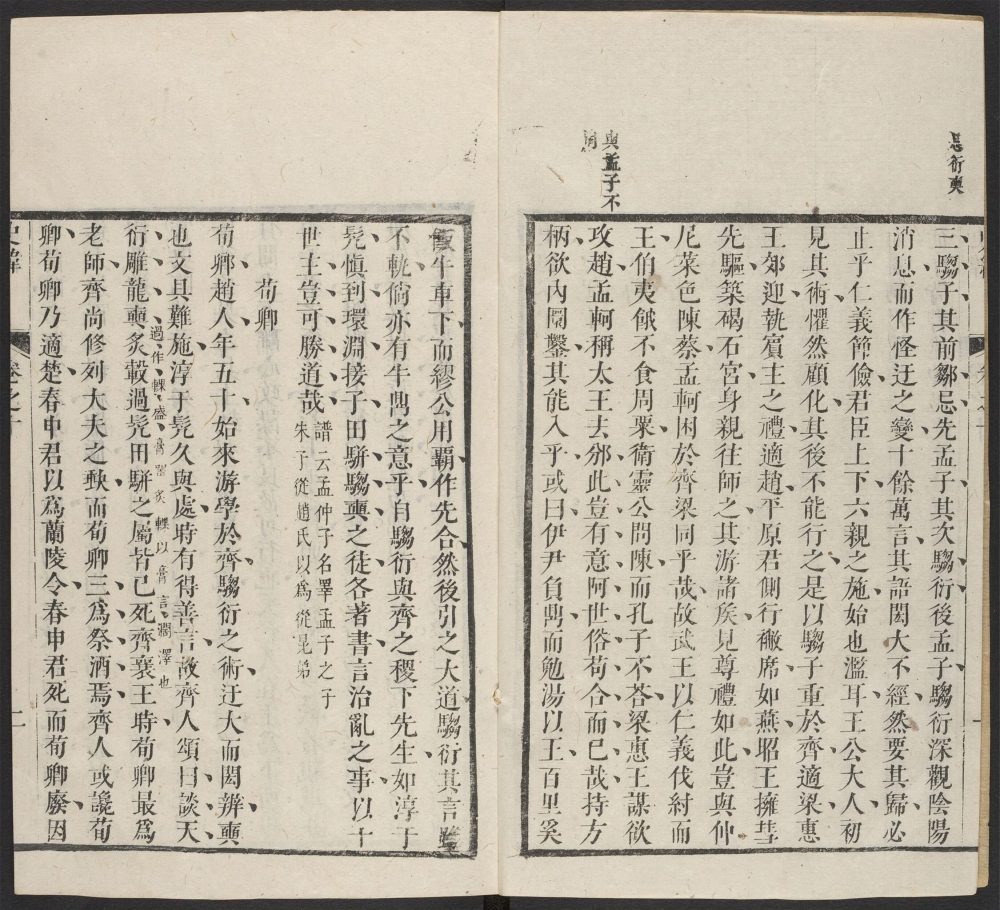 忌衍奭
三騶子其前鄒忌先孟子其次騶衍後孟子騶衍深觀陰陽
消息而作怪迂之變十餘萬言其語閎大不經然要其歸必
止乎仁義節儉君臣上下六親之施始也濫耳王公大人初
見其術懼然顧化其後不能行之是以騶子重於齊適梁惠
王郊迎執賓主之禮適趙平原君側行襒席如燕昭王擁彗
先驅築碣石宮身親往師之其游諸矦見尊禮如此豈與仲
尼菜色陳蔡孟軻困於齊梁同乎哉故武王以仁義伐紂而
與孟子不
同
王伯夷餓不食周粟衛靈公問陳而孔子不荅梁惠王謀欲
攻趙孟軻稱太王去邠此豈有意阿世俗苟合而已哉持方
柄欲內圓鑿其能入乎或曰伊尹負鼎而勉湯以王百里奚
飯牛車下而繆公用霸作先合然後引之大道騶衍其言雖
不軌倘亦有牛鼎之意乎自騶衍與齊之稷下先生如淳于
髡愼到環淵接子田駢騶奭之徒各著書言治亂之事以十
世主豈可勝道哉
譜云孟仲子名睪孟子之子
朱子從趙氏以爲從昆弟
荀卿
荀卿趙人年五十始來游學於齊騶衍之術迂大而閎辨奭
也文具難施淳于髡久與處時有得善言故齊人頌曰談天
衍雕龍奭炙轂過髡田駢之屬皆已死齊襄王時荀卿最爲
過作輠盛膏器炙輠以膏言潤澤也
老師齊尚修列大夫之缺而荀卿三爲祭酒焉齊人或讒荀
卿荀卿乃適楚春申君以爲蘭陵令春申君死而荀卿廢因
史緯
卷之十
二